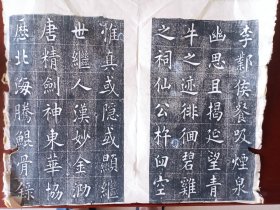 李鄴侯餐吸煙泉
幽思且揭延望青
牛之迹徘徊碧雞
之祠仙公杵臼空
惟真或隱或顯繼
世繼人漢妙金泐
唐精劍神東華協
歷北海騰鯤骨錄